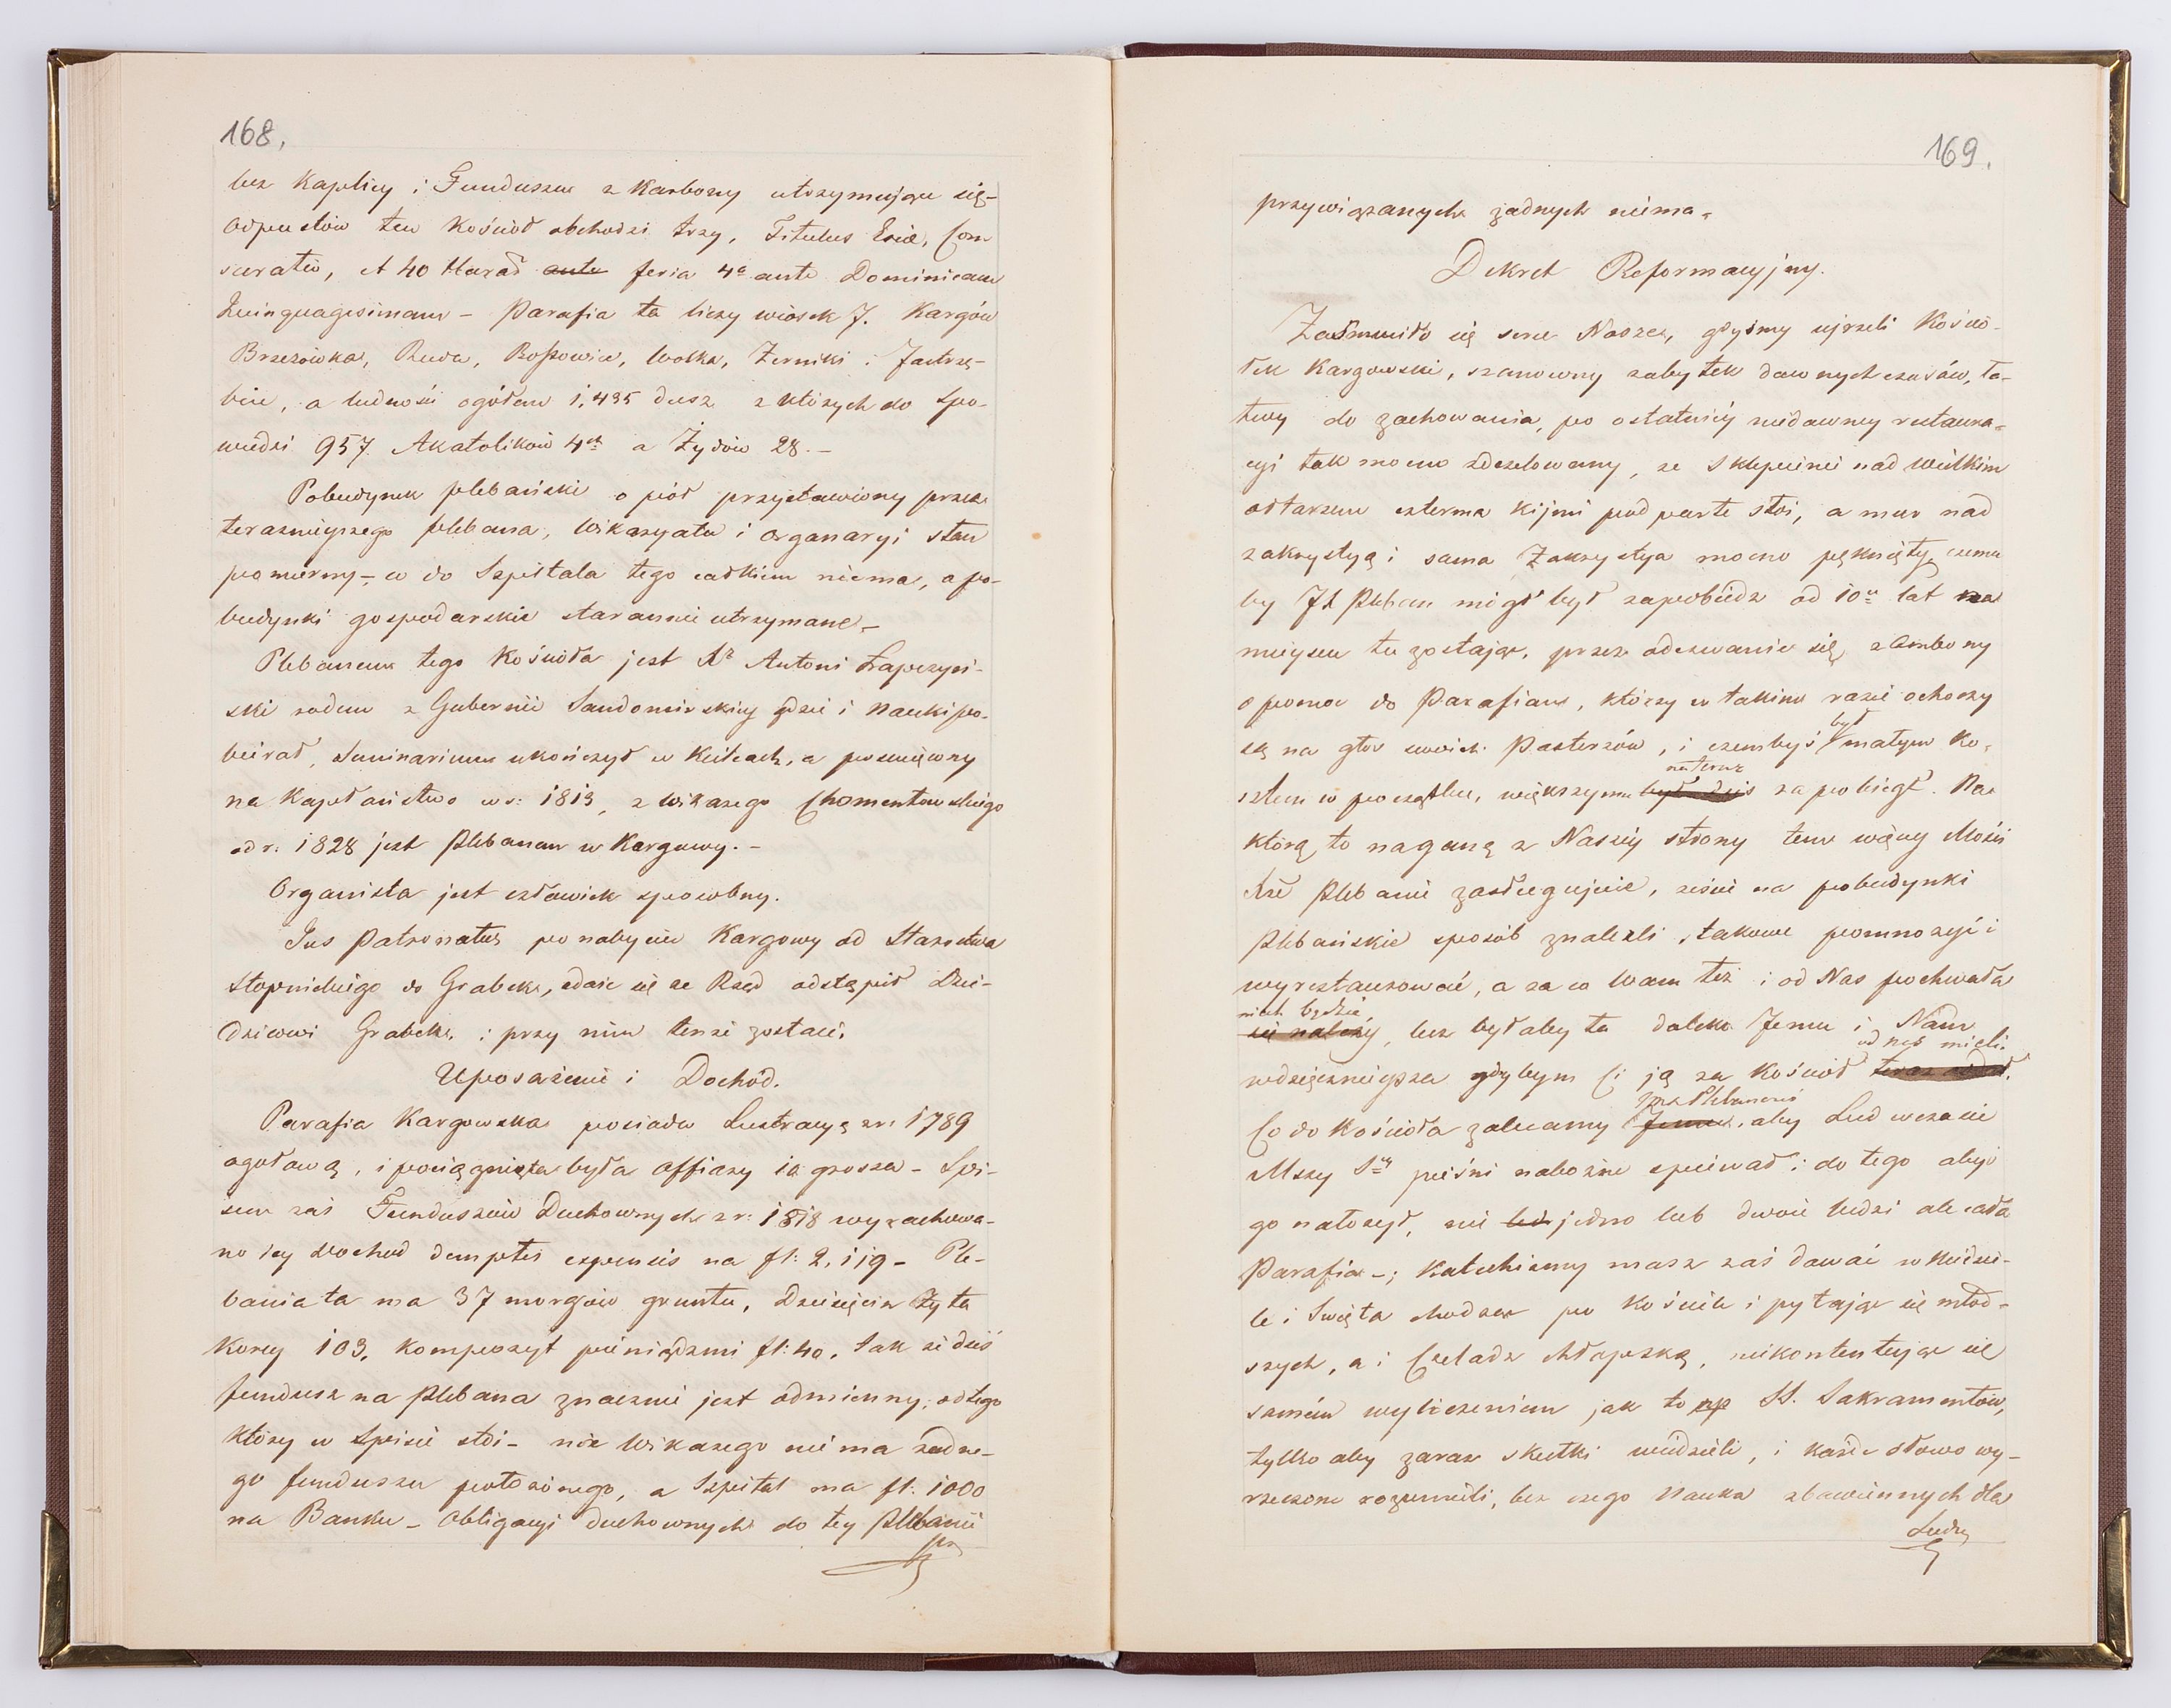 168.
bez Kaplicy i Funduszu z Karbony utrzymujące się-
Odpustów ten Kościoł obchodzi trzy, Titulus Ecie, Con
secratio, et 40 Horar ante feria 4a ante Dominicam
Quinquagesimam - Parafia ta liczy wiosek 7. Kargów
Brzezówka, Ruda, Rossowice, Wolka, Zerniki i Jastrzę-
bice, a ludności ogółem 1,435 dusz z których do Spo-
wiedzi 957. Akatolików 4ch a Żydów 28.-
Pobudynek plebański o pióŀ przystawiony przez
terazniejszego plebana, Wikaryatu i organaryi stan
pomierny-, co do Szpitala tego całkiem niema, a po-
budynki gospodarskie starannie utrzymane-
Plebanem tego Kościoła jest Xz Antoni Łapczyń-
ski rodem z Gubernii Sandomirskiey gdzie i nauki po-
bierał, Seminarium ukończył w Kielcach, a poswięcony
na Kapłaństwo w r: 1813, z wikarego Chomentowskiego
od r. 1828 jest Plebanem w Kargowy.-
Organista jest człowiek sposobny.
Jus Patronatus po nabyciu Kargowy od Starostwa
Stopnickiego do Grabek, zdaie się ze Rząd odstąpił Dzie-
dzicowi Grabek, i przy nim tenże zostaie.
Uposażenie i Dochód.
Parafia Kargowska posiada Lustracyą z r. 1789
ogołową, i pociągnięta była offiary 10 grosza - Spi-
sem zaś Funduszów Duchownych z r. 1818 wyrachowa-
no iey dochod demptis expensis na fl: 2,119 - Ple-
bania ta ma 37 morgów gruntu, Dziesięcin Zyta
korcy 103, kompozyt pieniądzmi fl: 40, tak ze dziś
fundusz na Plebana znacznie jest odmienny, od tego
który w Spisie stoi - na Wikarego nie ma żadne-
go funduszu położonego, a Szpital ma fl. 1000
na Banku - Obligacyi duchownych do tey Plebanii
prz
169.
przywiązanych żadnych niema.
Dekret Reformacyjny.
Zasmuciło się serce Nasze, gdyśmy ujrzeli Kośció-
łek Kargowski, szanowny zabytek dawnych czasów, ła-
twy do zachowania, po ostatniéy niedawney restaura-
cyi tak mocno zdezelowany, ze Sklepienie nad wielkim
ołtarzem czterma kijmi podparte stoi, a mur nad
zakrystyą i sama Zakrystya mocno pęknięty, czemu
by JX Pleban mógł był zapobiedz od 10u lat na
mieyscu tu zostając, przez odezwanie się z Ambony
o pomoc do Parafian, którzy w takim razie ochoczy
są na głos swoich Pasterzów, i czembyś był małym ko-
sztem w początku, większym był dziś na teraz zapobiegł. Na
którą to naganę z Naszéy strony tem więcey Mości
Xże Plebanie zasługujecie, żeście na pobudynki
Plebańskie sposób znaleźli, takowe pomnożyć i
wyrestaurować, a za co Wam też i od Nas pochwała
się należy niech będzie, lecz byłaby ta daleko Jemu i Nam
wdzięcznieysza gdybym Ci ją za kościoł od nas mieli.
Co do Kościoła zalecamy Jemu, aby Lud wczasie
Mszy Sty pieśni nabożne spiewał i do tego abyś
go nałożył, nie jedno lub dwoie ludzi ale cała
Parafia-; Katechizmy masz zaś dawać w Niedzie-
le i Święta chodząc po Kościele i pytając się młod-
szych, a i Czeladź chłopską, niekontentując się
samém wyliczeniem jak to SS. Sakramentów,
tylko aby zaraz skutki wiedzieli, i każde słowo wy-
rzeczone rozumieli, bez czego Nauka zbawiennych dla
Ludu